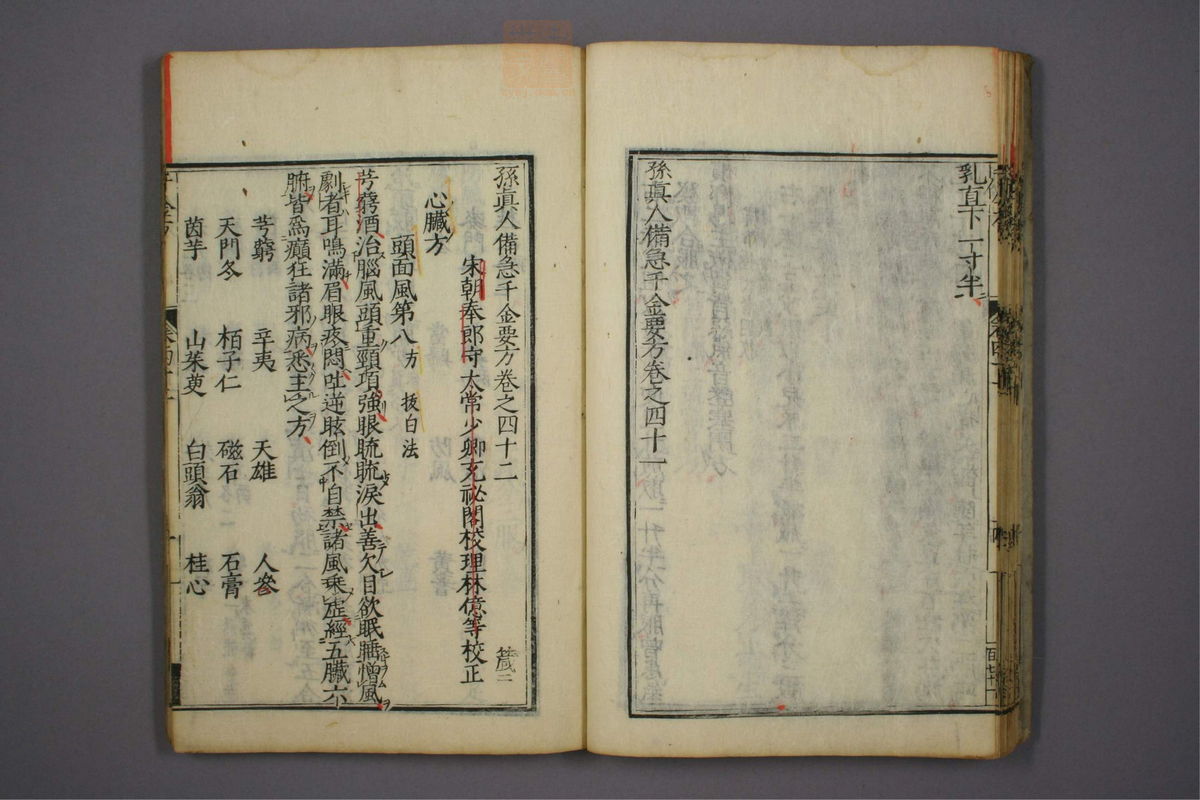 乳直下一寸半
孫眞人備急千金要方卷之四十一
孫眞人備急千金要方卷之四十二
宋朝奉郎守太常少卿充祕閣校理林億等校正
心臟方
頭面風第八方 拔白法
芎藭酒治腦風頭重頸項強眼䀮䀮淚出善欠目欲眠睡憎風
劇者耳鳴滿眉眼疼悶吐逆眩倒不自禁諸風乘虛經五臟六
腑皆爲癲狂諸邪病悉主之方
芎藭 辛夷 天雄 人參
天門冬 栢子仁 磁石 石膏
茵芋 山茱萸 白頭翁 桂心